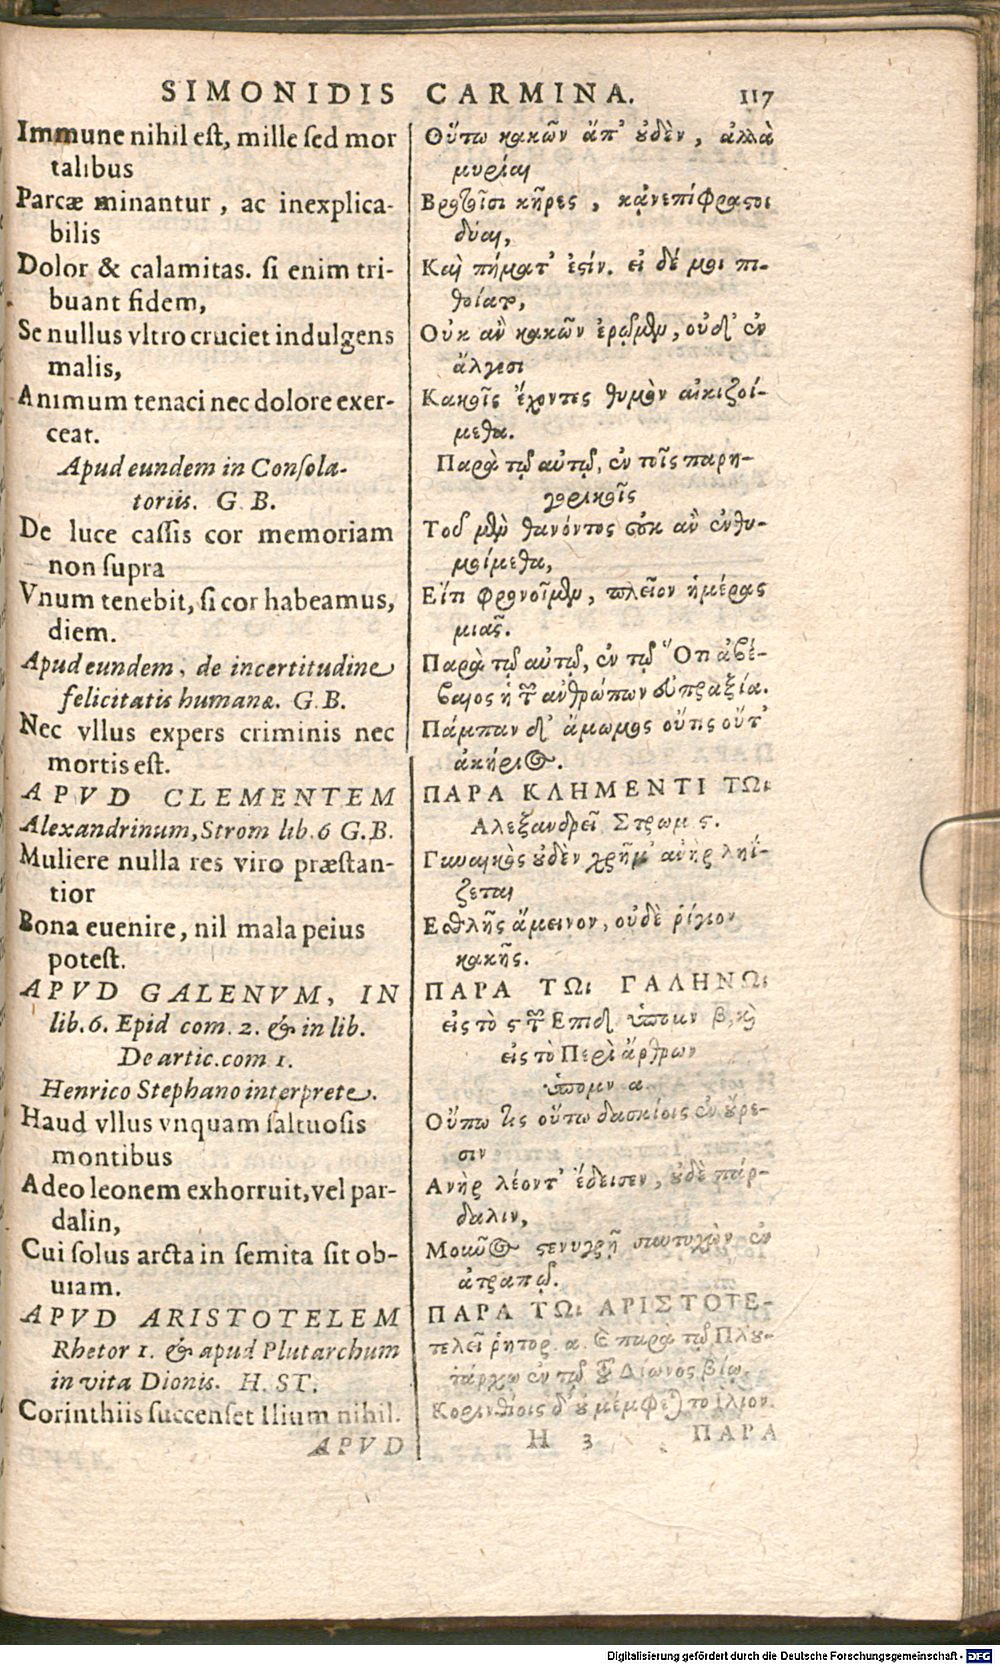 SIMONIDIS CARMINA. 117
Immune nihil est, mille sed mor
talibus
Parcæ minantur, ac inexplica-
bilis
Dolor & calamitas. si enim tri-
buant fidem,
Se nullus vltro cruciet indulgens
malis,
Animum tenaci nec dolore exer-
ceat.
Apud eundem in Consola-
toriis. G. B.
De luce cassis cor memoriam
non supra
Vnum tenebit, si cor habeamus,
diem.
Apud eundem, de incertitudine
felicitatis humanæ. G. B.
Nec vllus expers criminis nec
mortis est.
APVD CLEMENTEM
Alexandrinum, Strom lib. 6 G. B.
Muliere nulla res viro præstan-
tior
Bona euenire, nil mala peius
potest.
APVD GALENVM, IN
lib. 6. Epid com. 2. & in lib.
De artic. com 1.
Henrico Stephano interprete.
Haud vllus vnquam saltuosis
montibus
Adeo leonem exhorruit, vel par-
dalin,
Cui solus arcta in semita sit ob-
uiam.
APVD ARISTOTELEM
Rhetor 1. & apud Plutarchum
in vita Dionis. H. ST.
Corinthiis succenset Ilium nihil.
APVD
Οὕτω κακῶν ἄπ' οὐδὲν, ἀλλὰ
μυρίαι
Βροτοῖσι κῆρες, κἀνεπίφραστοι
δύαι,
Καὶ πήματ' ἐστίν. εἰ δέ μοι πι-
θοίατο,
Οὐκ ἂν κακῶν ἐρῷμεν, οὐδ' ἐν
ἄλγεσι
Κακοῖς ἔχοντες θυμὸν αἰκιζοί-
μεθα.
Παρὰ τῷ αὐτῷ, ἐν τοῖς παρη-
γορικοῖς
Τοῦ μὲν θανόντος οὐκ ἂν ἐνθυ-
μοίμεθα,
Εἴ τι φρονοῖμεν, πλεῖον ἡμέρας
μιᾶς.
Παρὰ τῷ αὐτῷ, ἐν τῷ Ὅτι ἀβέ-
βαιος ἡ τῶν ἀνθρώπων εὐπραξία.
Πάμπαν δ' ἄμωμος οὔτις οὔτ'
ἀκήριος.
ΠΑΡΑ ΚΛΗΜΕΝΤΙ ΤΩι
Αλεξανδρεῖ Στρωμ ϛ.
Γυναικὸς οὐδὲν χρῆμ' ἀνὴρ ληΐ-
ζεται
Εσθλῆς ἄμεινον, οὐδὲ ῥίγιον
κακῆς.
ΠΑΡΑ ΤΩι ΓΑΛΗΝΩι
εἰς τὸ ϛ τῶν Επιδ ὑπομν β, καὶ
εἰς τὸ Περὶ ἄρθρων
ὑπομν α
Οὔπω τις οὕτω δασκίοις ἐν οὔρε-
σιν
Ανὴρ λέοντ' ἔδεισεν, οὐδὲ πάρ-
δαλιν,
Μοῦνος στενυγρῇ συντυχὼν ἐν
ἀτραπῷ.
ΠΑΡΑ ΤΩι ΑΡΙΣΤΟΤΕ-
τελεῖ ῥητορ. α. καὶ παρὰ τῷ Πλου-
τάρχῳ ἐν τῷ τοῦ Δίωνος βίῳ.
Κορινθίοις δ' οὐ μέμφεται τὸ Ἴλιον.
H 3 ΠΑΡΑ
Digitalisierung gefördert durch die Deutsche Forschungsgemeinschaft - DFG